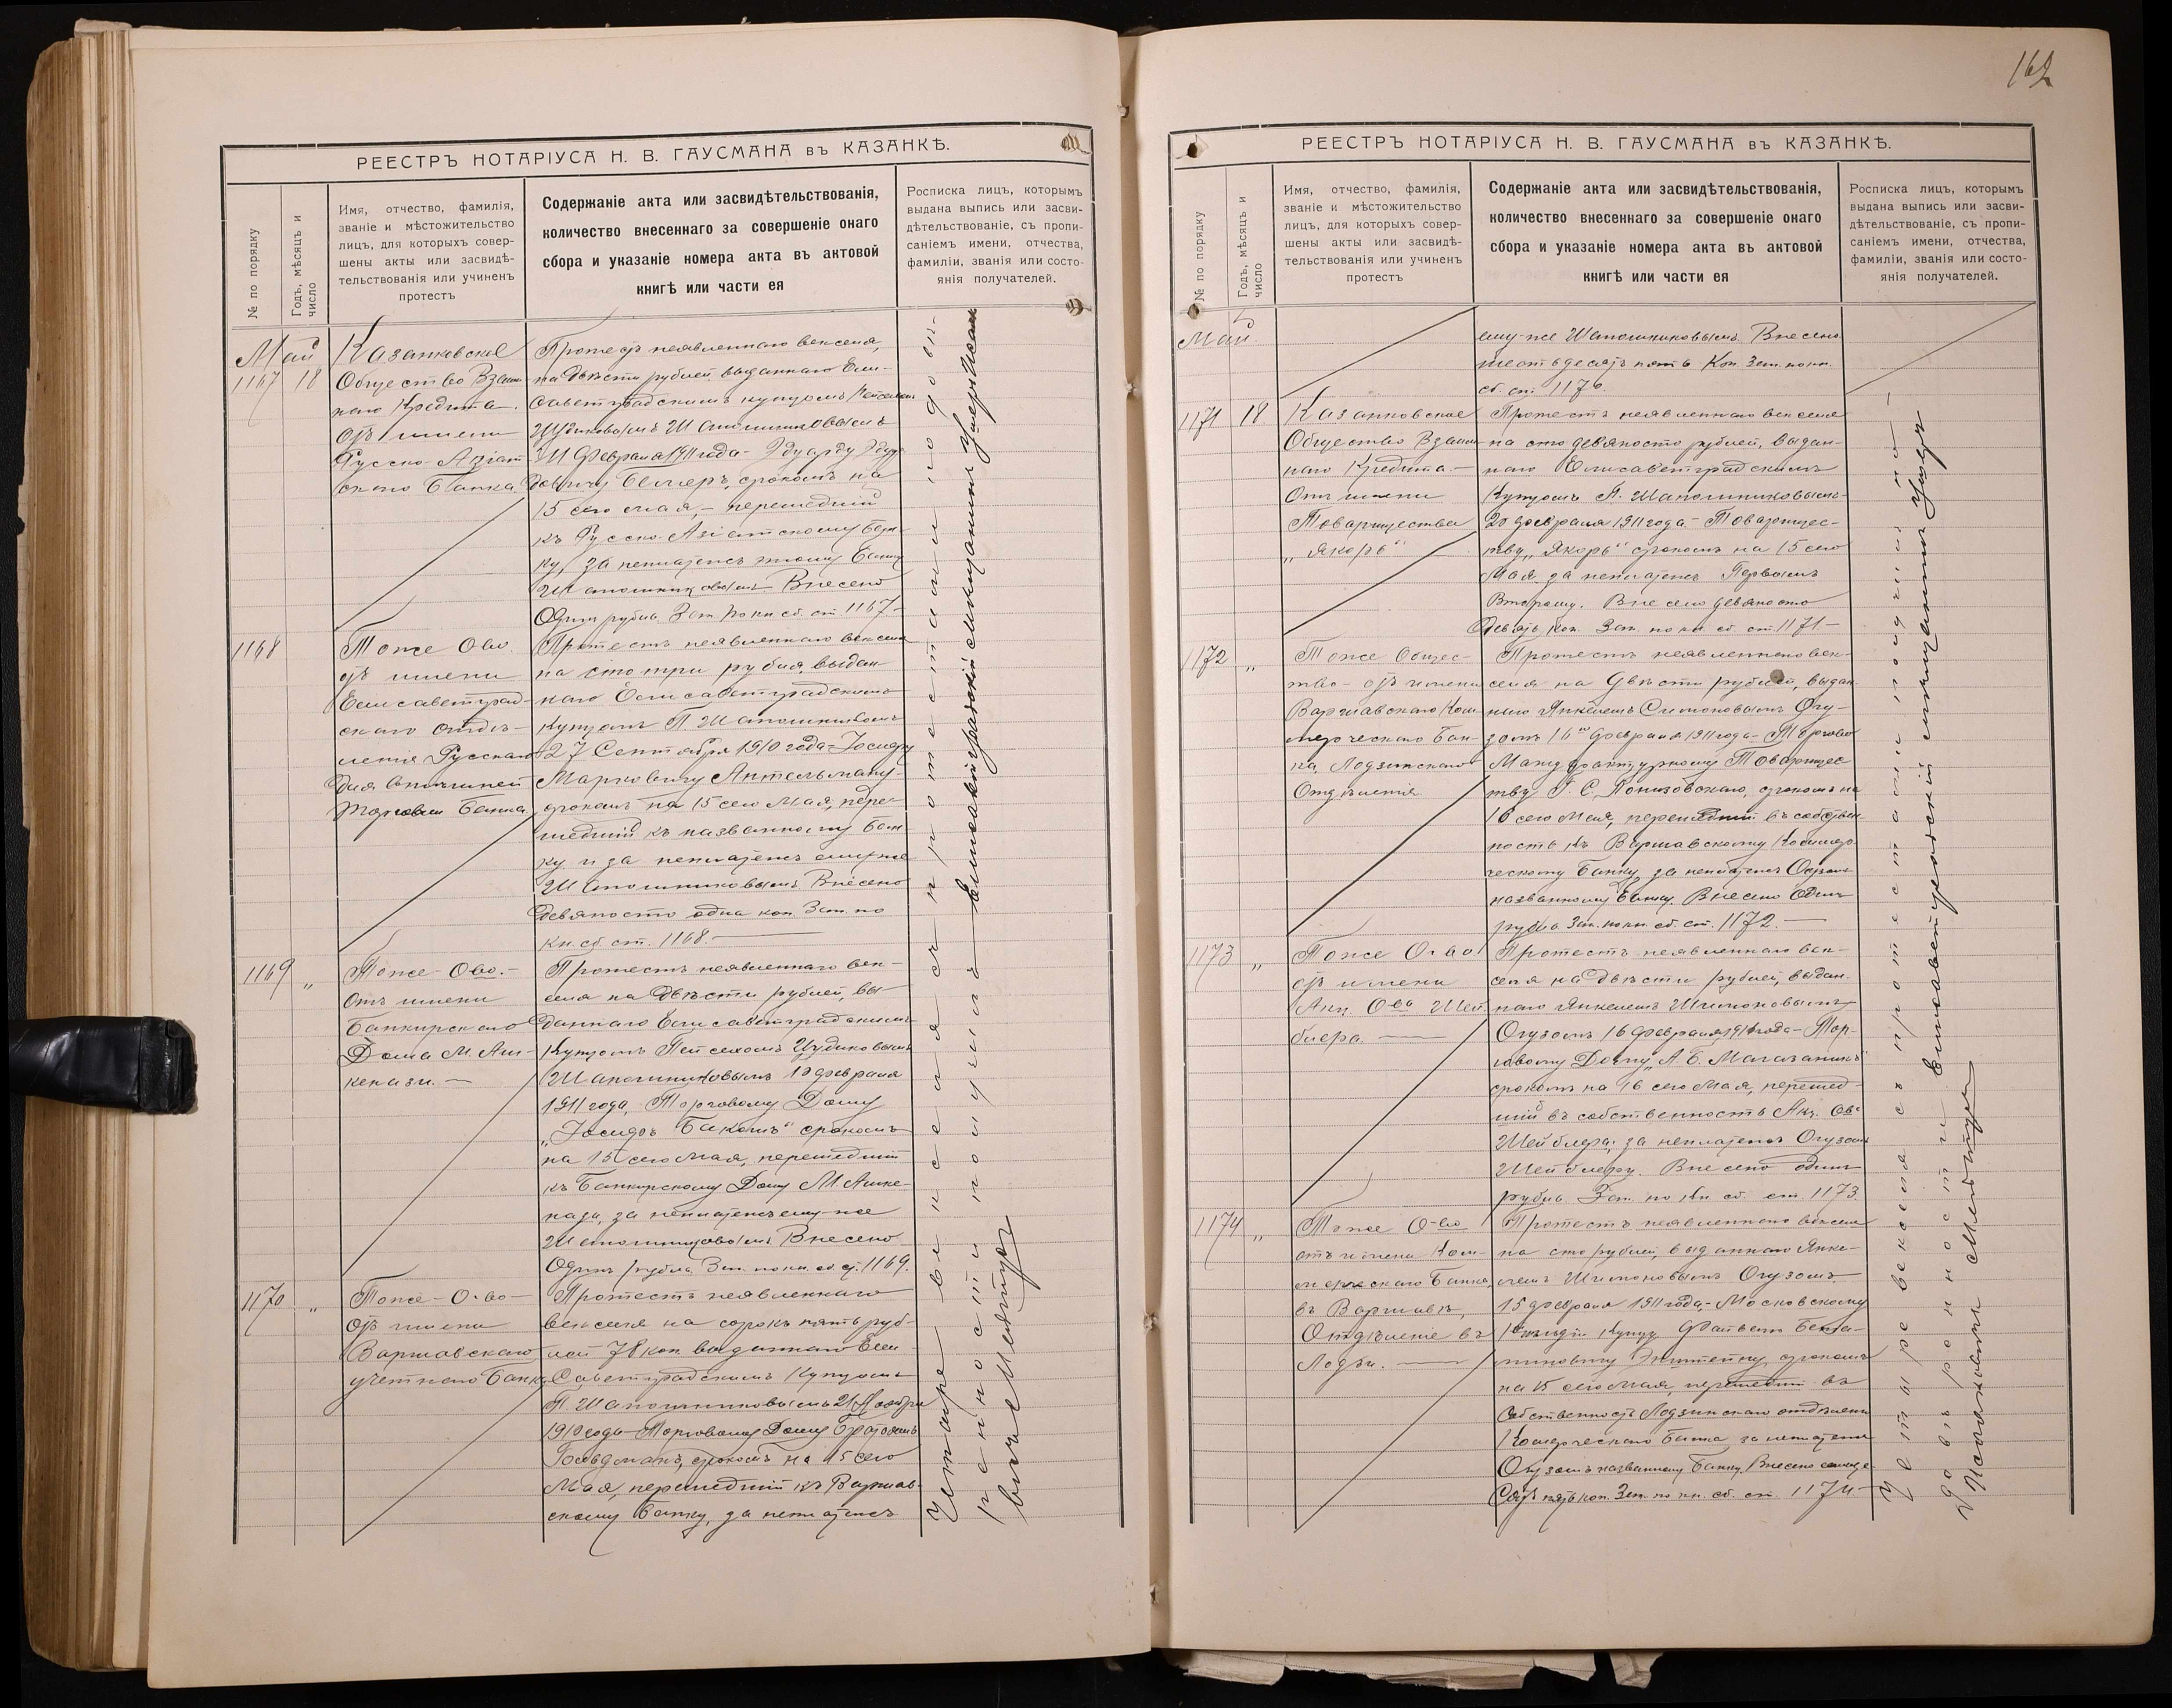 РЕЕСТРЪ НОТАРІУСА Н. В. ГАУСМАНА въ КАЗАНКѢ.
№ по порядку
Годъ, мѣсяцъ и
число
Имя, отчество, фамилія,
званіе и мѣстожительство
лицъ, для которыхъ совер-
шены акты или засвидѣ-
тельствованія или учиненъ
протестъ
Содержаніе акта или засвидѣтельствованія,
количество внесеннаго за совершеніе онаго
сбора и указаніе номера акта въ актовой
книгѣ или части ея
Росписка лицъ, которымъ
выдана выпись или засви-
дѣтельствованіе, съ пропи-
саніемъ имени, отчества,
фамиліи, званія или состо-
янія получателей.
Май
1167 18
Казанковское
Общество Взаим
наго Кредита
отъ имени
Русско-Азіат
скаго Банка
Протестъ неявленнаго векселя,
на двѣсти рублей, выданнаго Ели-
саветградскимъ купцомъ
Шапошниковымъ
11 Февраля 1911 года - Эдуарду Эдуар
довичу срокомъ на
15 сего Мая, - перешедшій
къ Русско-Азіатскому Бан-
ку, за неплатежъ этому Банку
Шапошниковымъ Внесено
Одинъ рубль Зап. по кн. сб. ст. 1167.-
1168
Тоже О-во
отъ имени
Елисаветград-
скаго отдѣ-
ленія Русскаго
для внѣшней
торговли Банка
Протестъ неявленнаго векселя
на сто три рубля, выдан-
наго Елисаветградскимъ
Купцомъ П. Шапошниковымъ
27 Сентября 1910 года - Іосифу
Марковичу
срокомъ на 15 сего Мая, пере-
шедшій къ названному Бан
ку и за неплатежъ ему-же
Шапошниковымъ Внесено
девяносто одна коп. Зап. по
кн. сб. ст. 1168.-
1169 "
Тоже О-во.-
отъ имени
Банкирскаго
Дома М. Аш-
кенази.-
Протестъ неявленнаго век-
селя на двѣсти рублей, вы-
даннаго Елисаветградскимъ
Купцомъ
Шапошниковымъ 10 февраля
1911 года, Торговому Дому
срокомъ
на 15 сего Мая, перешедшій
къ Банкирскому Дому М. Ашке-
нази, за неплатежъ ему-же
Шапошниковымъ Внесено
Одинъ рубль Зап. по кн. сб. ст. 1169.
1170 "
Тоже-О-во-
отъ имени
Варшавскаго
учетнаго Банка
Протестъ неявленнаго
векселя на сорокъ пять руб-
лей 78 коп. выданнаго Ели-
саветградскимъ Купцомъ
П. Шапошниковымъ 21 Ноября
1910 года Торговому Дому Братьевъ
срокомъ на 15 сего
Мая, перешедшій къ Варшав-
скому Банку, за неплатежъ
Четыре векселя съ протестами по до-
вѣренности получилъ Елисаветградскій мѣщанинъ
162
РЕЕСТРЪ НОТАРІУСА Н. В. ГАУСМАНА въ КАЗАНКѢ.
№ по порядку
Годъ, мѣсяцъ и
число
Имя, отчество, фамилія,
званіе и мѣстожительство
лицъ, для которыхъ совер-
шены акты или засвидѣ-
тельствованія или учиненъ
протестъ
Содержаніе акта или засвидѣтельствованія,
количество внесеннаго за совершеніе онаго
сбора и указаніе номера акта въ актовой
книгѣ или части ея
Росписка лицъ, которымъ
выдана выпись или засви-
дѣтельствованіе, съ пропи-
саніемъ имени, отчества,
фамиліи, званія или состо-
янія получателей.
Май
ему-же Шапошниковымъ Внесено
шестьдесятъ пять Коп. Зап. по кн.
сб. ст. 1170.
1171 18
Казанковское
Общество Взаим
наго Кредита.-
Отъ имени
Товарищества
„Якорь"
Протестъ неявленнаго векселя
на сто девяносто рублей, выдан-
наго Елисаветградскимъ
Купцомъ П. Шапошниковымъ
20 февраля 1911 года - Товарищес-
тву „Якорь" срокомъ на 15 сего
Мая, за неплатежъ Первымъ
Второму. Внесено девяносто
девять коп. Зап. по кн. сб. ст. 1171-
1172 "
Тоже Общес-
тво - отъ имени
Варшавскаго Ком
мерческаго Бан-
ка, Лодзинскаго
Отдѣленія
Протестъ неявленнаго век-
селя на двѣсти рублей, выдан
наго Янкелемъ Симоновымъ Огу-
зомъ 16го февраля 1911 года - Торгово
Мануфактурному Товарищес
тву срокомъ на
16 сего Мая, перешедшій въ собствен-
ность къ Варшавскому Коммер-
ческому Банку, за неплатежъ Огузомъ
названному Банку. Внесено Одинъ
рубль Зап. по кн. сб. ст. 1172.-
1173 "
Тоже О-во
отъ имени
Акц. О-ва Шей
блера.-
Протестъ неявленнаго век-
селя на двѣсти рублей, выдан-
наго Янкелемъ Шимоновымъ
Огузомъ 16 февраля 1911 года - Тор-
говому Дому „А. Б. Магазаникъ"
срокомъ на 16 сего Мая, перешед-
шій въ собственность Акц. О-ва
Шейблера; за неплатежъ Огузомъ
Шейблеру. Внесено одинъ
рубль Зап. по кн. сб. ст. 1173.
1174 "
Тоже О-во
отъ имени Ком-
мерческаго Банка
въ Варшавѣ,
Отдѣленіе въ
Лодзи.-
Протестъ неявленнаго векселя
на сто рублей, выданнаго Янке-
лемъ Шимоновымъ Огузомъ
15 февраля 1911 года,- Московскому
1 гильдіи Купцу
срокомъ
на 15 сего Мая, перешедшій въ
Собственность Лодзинскаго отдѣленія
Коммерческаго Банка за неплатежъ
Огузомъ названному Банку. Внесено
пять коп. Зап. по кн. сб. ст. 1174-
Четыре векселя съ протестами получилъ по
довѣренности Елисаветградскій мѣщанинъ